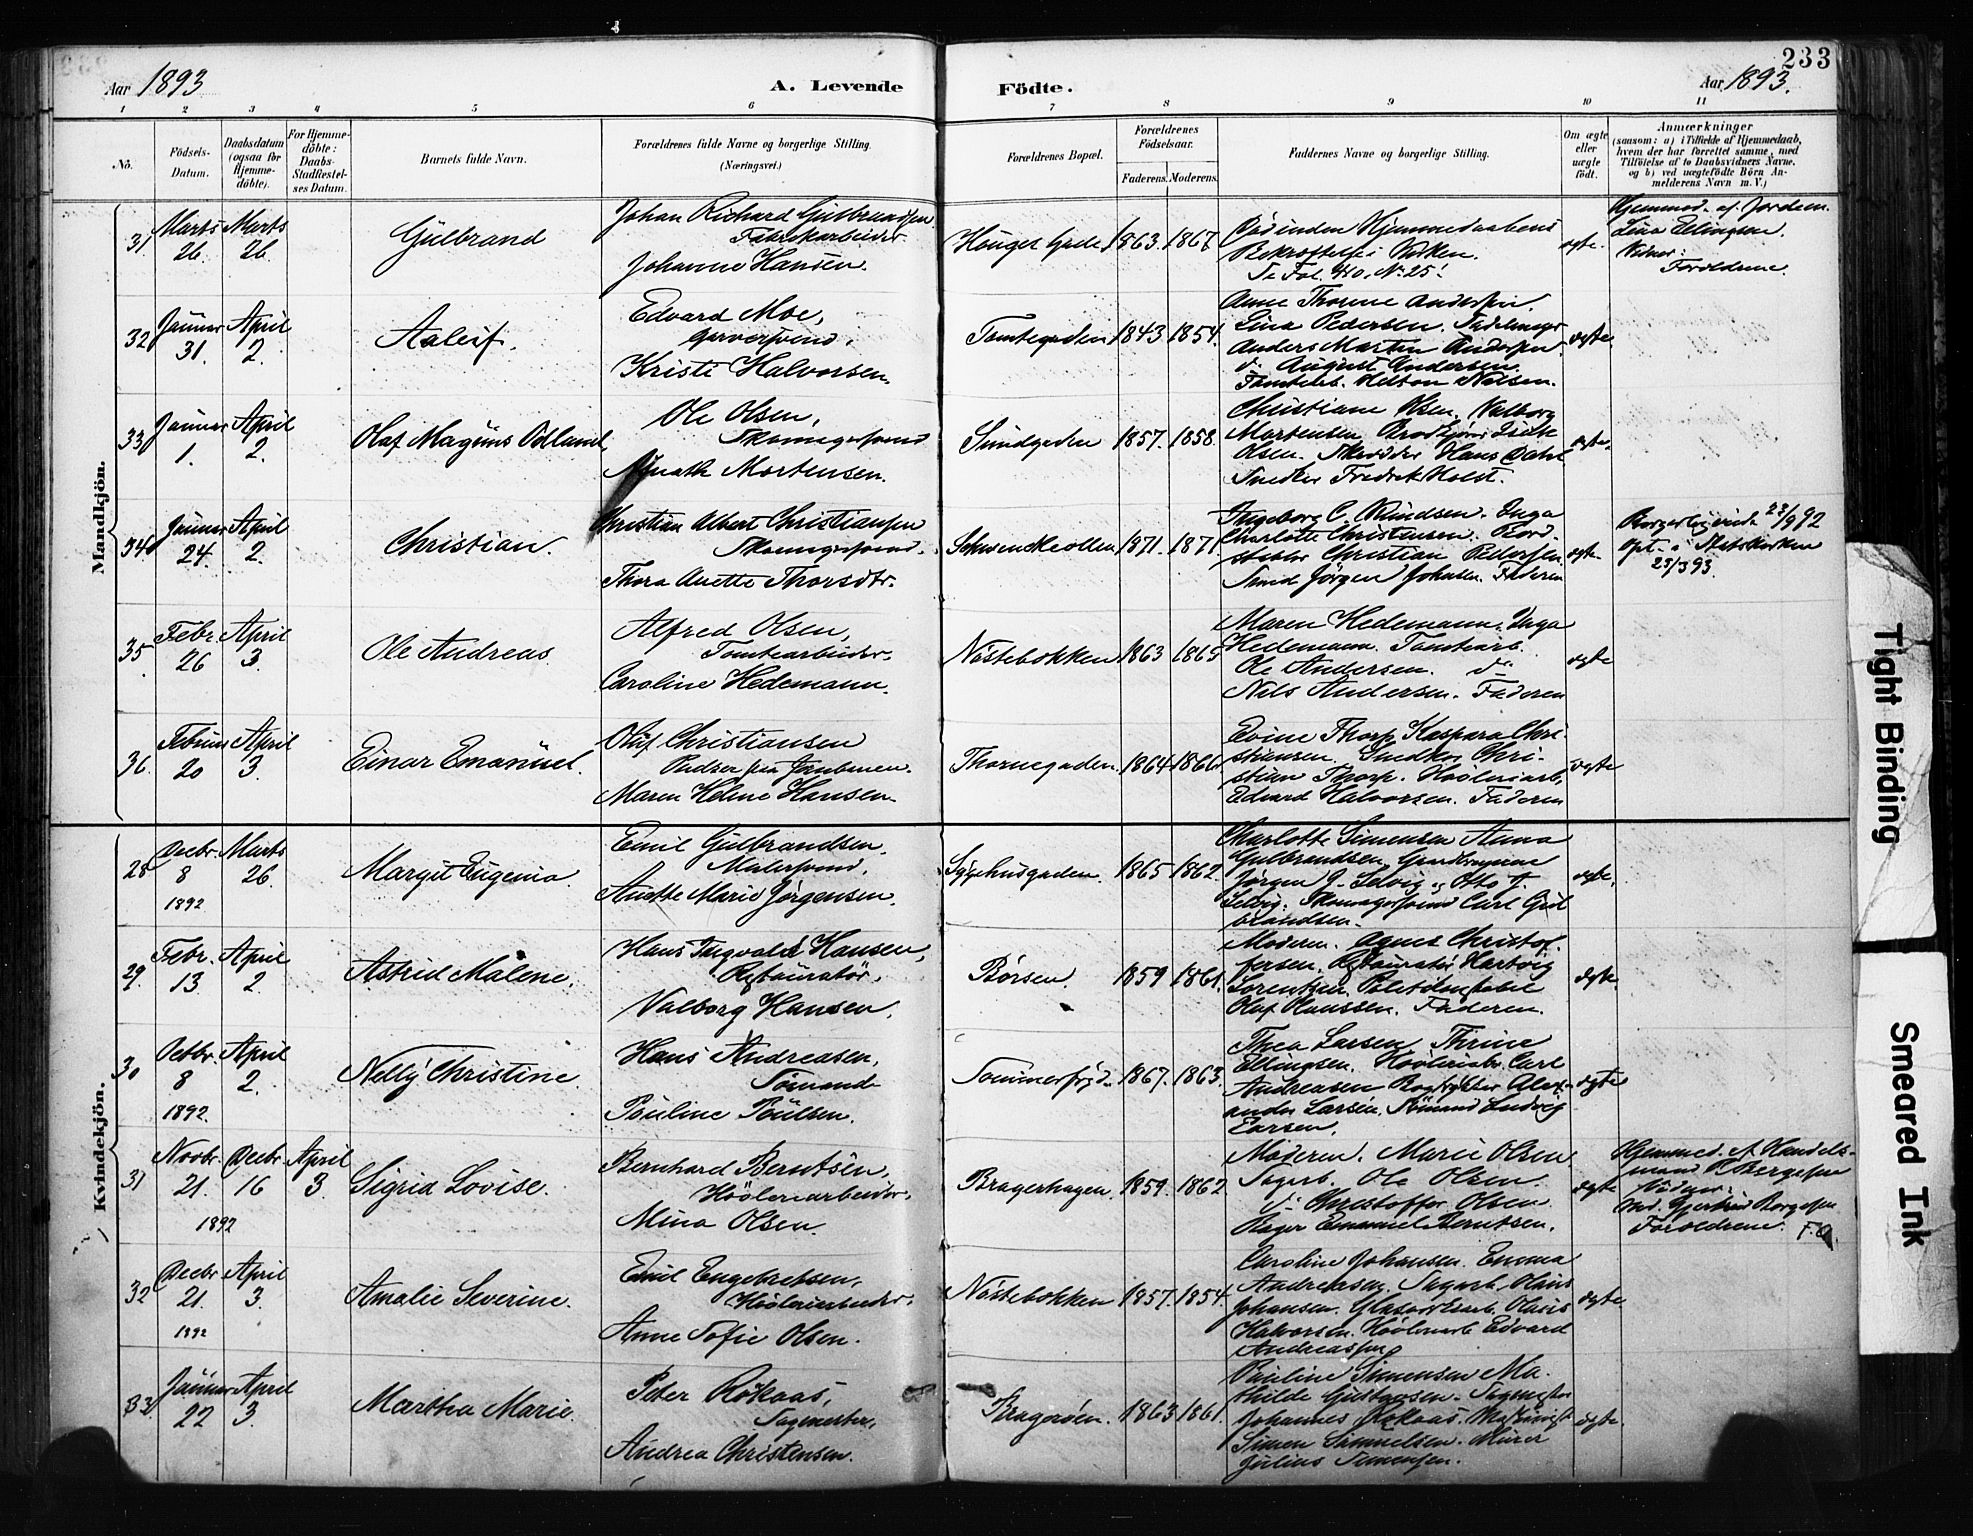 233
Aar 1893
A. Levende
Födte.
Aar 1893.
1 2 3 4 5 6 7 8 9 10 11
No.
Födsels-
Datum.
Daabsdatum
(ogsaa for
Hjemme-
döbte).
For Hjemme-
döbte:
Daabs-
Stadfæstel-
ses Datum.
Barnets fulde Navn.
Forældrenes fulde Navne og borgerlige Stilling
(Næringsvei.)
Forældrenes Bopæl.
Forældrenes
Födselsaar.
Faderens. Moderens.
Faddernes Navne og borgerlige Stilling.
Om ægte
eller
uægte
födt.
Anmærkninger
(saasom: a) i Tilfælde af Hjemmedaab,
hvem der har forrettet samme, med
Tilföielse af to Daabsvidners Navne,
og b) ved uægtefödte Börn An-
melderens Navn m. V.)
Mandkjön.
31
Marts
26.
Marts
26.
Gulbrand
Johan Richard Gulbrandsen
Fabrikarbeider
Johanne Hansen.
Hauges Gade
1863. 1867
Hjemmedaabens
Bekræftelse i Kirken.
Se Fol. No. 25!
ægte.
Hjemmed. af Jordem.
Lina Ellingsen.
Vidner:
Forældrene.
32
Januar
31.
April
2.
Aaleif.
Edvard Moe,
Garversvend.
Kristi Halvorsen.
Tomtegaden
1843. 1854.
Anne Thorine Andersen.
Lina Pedersen.
Anders Martin Andersen.
do August Andersen.
Nilsen.
ægte.
33.
Januar
1.
April
2.
Olaf Magnus Odland,
Ole Olsen,
Skomagersvend
Mortensen.
Sundgaden
1857. 1858.
Christiane Olsen. Valborg
Martensen.
Olsen. Skrædder Hans Dahl
Snedker Fredrik Holst.
ægte.
34
Januar
24.
April
2.
Christian.
Christian Albert Christiansen
Skomagersvend.
Thora Anette Thorsdtr.
Schwenckeollen
1871. 1871.
Ingeborg C. Knudsen. Inga
Charlotte Christensen.
Christian Pedersen
Smed Jörgen Johnsen. Faderen
ægte.
Borgerligviede 22/9 92
i Statskirken
23/3 93.
35.
Febr.
26
April
3.
Ole Andreas
Alfred Olsen,
Tomtearbeider.
Caroline Hedemann.
Nöstebakken
1863 1865
Maren Hedemann. Inga
Hedemann. Tomtearb.
Ole Andersen. do
Nils Andersen. Faderen
ægte
36.
Februar
20
April
3.
Einar Emanuel.
Oluf Christiansen
Pudser paa Jernbanen.
Maren Helene Hansen.
Thornegaden.
1864 1866
Evine Thorp. Kaspara Chri-
stiansen. Snedker Chri-
stian Thorp. Hövleriarb.
Edvard Halvorsen. Faderen
ægte
Kvindekjön.
28
Decbr.
8
1892
Marts
26.
Margit Eugenia.
Emil Gulbrandsen.
Malersvend.
Anette Marie Jörgensen.
Sygehusgaden.
1865 1862.
Charlotte Simensen Anna
Gulbrandsen.
Jörgen J. Selvig og Otto J.
Selvig. Skomagersvend Carl Gul
brandsen.
ægte.
29.
Febr.
13
April
2.
Astrid Malene.
Hans Ingvald Hansen,
Restauratör.
Valborg Hansen.
Börsen.
1859 1861.
Moderen. Agnes Christof-
fersen. Restauratör Hartvig
Lorentzen. Politikonstabel
Olaf Hanssen. Faderen.
ægte.
30
Octbr.
8
1892.
April
2.
Nelly Christine.
Hans Andreasen,
Sömand
Pauline Poulsen.
Sommerfryd.
1867. 1863.
Thea Larsen, Thrine
Ellingsen. Hövleriarb. Carl
Andreasen Alex-
ander Larsen. Sömand Ludvig
Larsen.
ægte
31
Novbr.
21.
1892
Decbr.
16
April
3.
Sigrid Lovise.
Bernhard Berntsen,
Hövleriarbeider.
Mina Olsen.
Bragerhagen.
1859. 1862
Moderen. Marie Olsen.
Sagarb. Ole Olsen.
do Christoffer Olsen.
Bager Emanuel Berntsen.
ægte
Hjemmed. af Handels-
mand Borgersen
Vidner:
Mad. Gjertrud Borgersen
Forældrene.
32
Decbr
21.
1892
April
3.
Amalie Severine.
Emil Engebretsen,
Hövleriarbeider.
Anne Sofie Olsen.
Nöstebakken
1857. 1854.
Caroline Johansen. Emma
Andreassen. Sagarb. Olaus
Johansen. Glasværksarb. Olaus
Halvorsen. Hövleriarb. Edvard
Andreassen
ægte
33.
Januar
22
April
3.
Martha Marie.
Peter Rökaas,
Sagmester.
Andrea Christensen.
Bragerøen.
1863 1861.
Pauline Simensen Ma-
thilde Gustavsen. Sagmester
Johannes Rökaas. Maskinist
Simen Samuelsen. Murer
Julius Simensen.
ægte.
Tight Binding
Smeared Ink